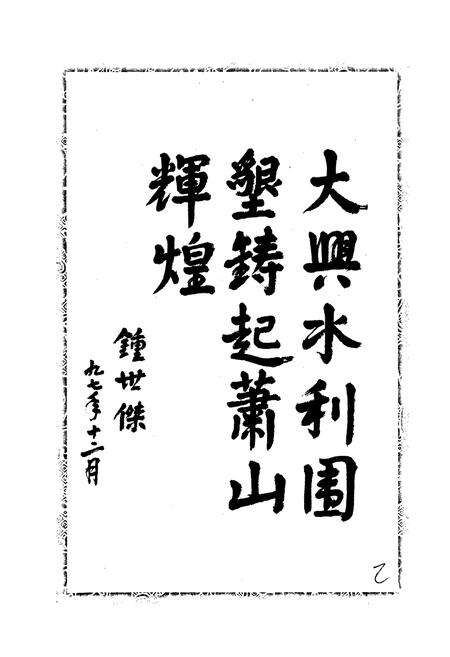 大興水利围
墾鑄起蕭山
輝煌
鍾世傑
九七年十二月
乙